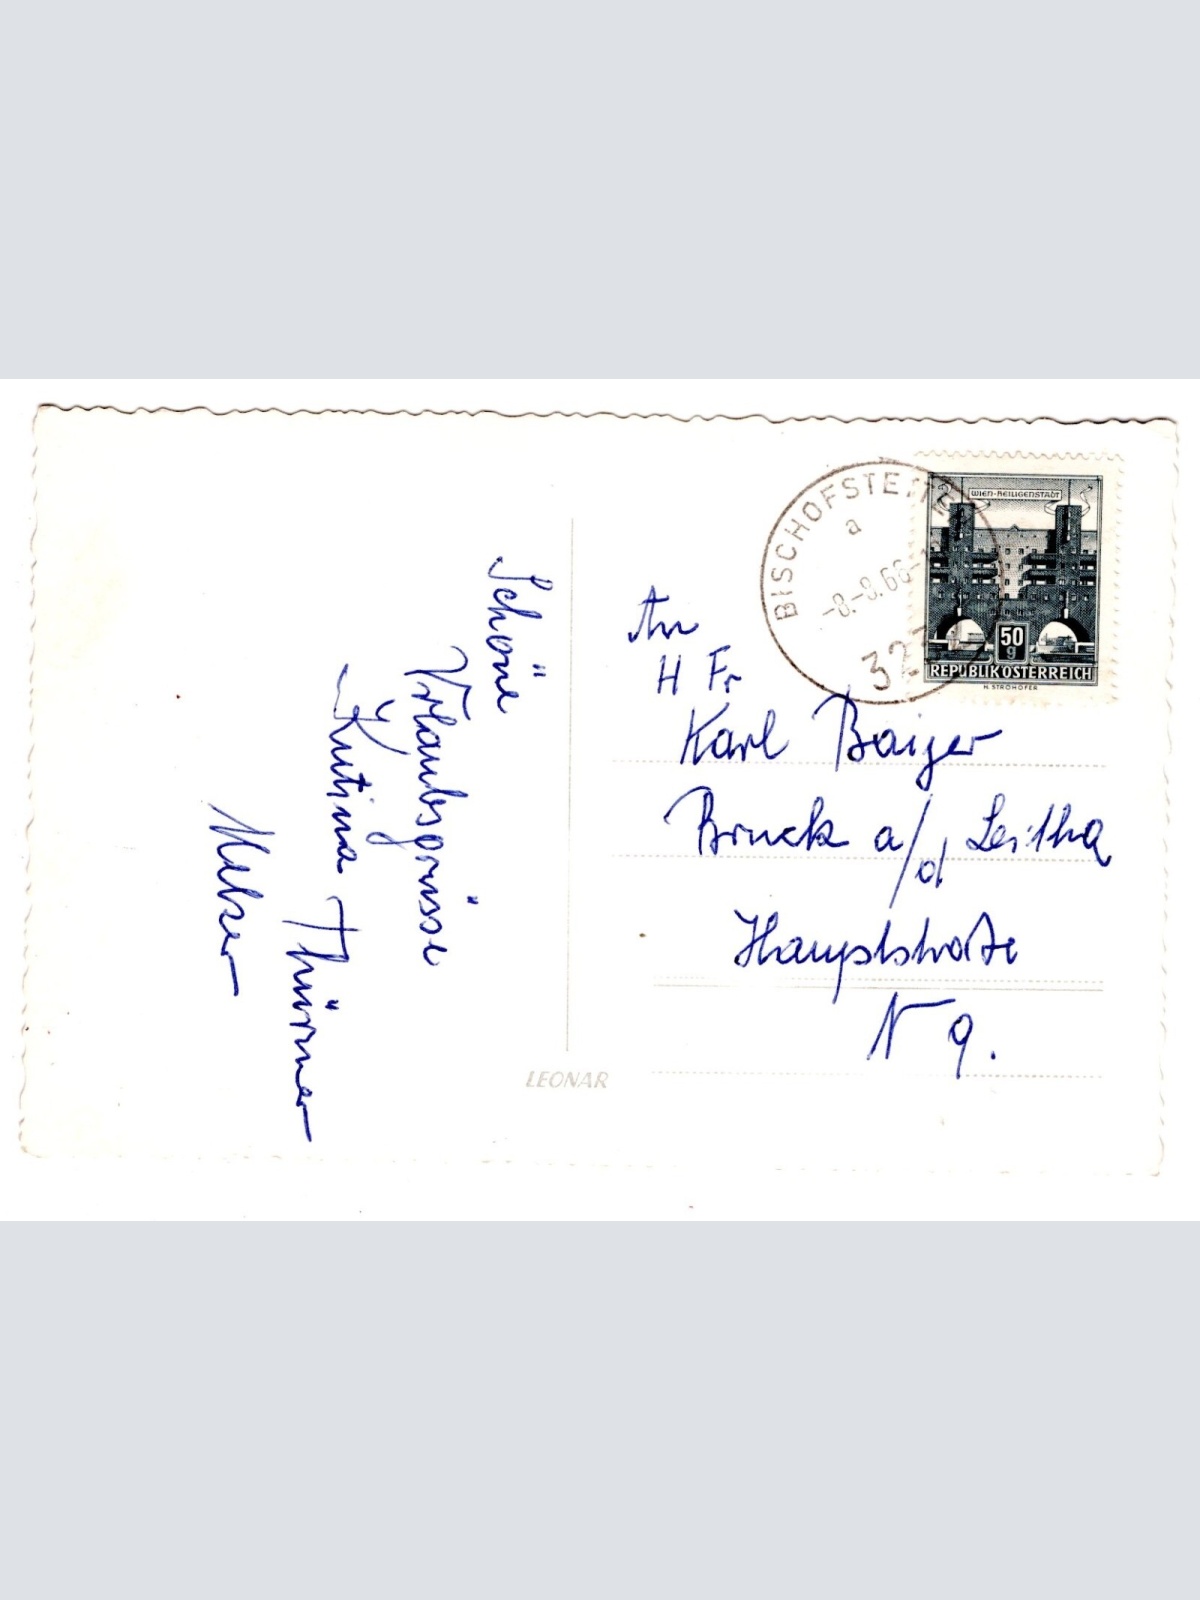 Schöne
Urlaubsgrüsse
Thürner
BISCHOFSTETTEN
a
-8.-8.66-1
32
WIEN-HEILIGENSTADT
50
g
REPUBLIK ÖSTERREICH
H. STROHOFER
An
H Fr
Karl Baiger
Bruck a/d Leitha
Hauptstraße
N 9.
LEONAR